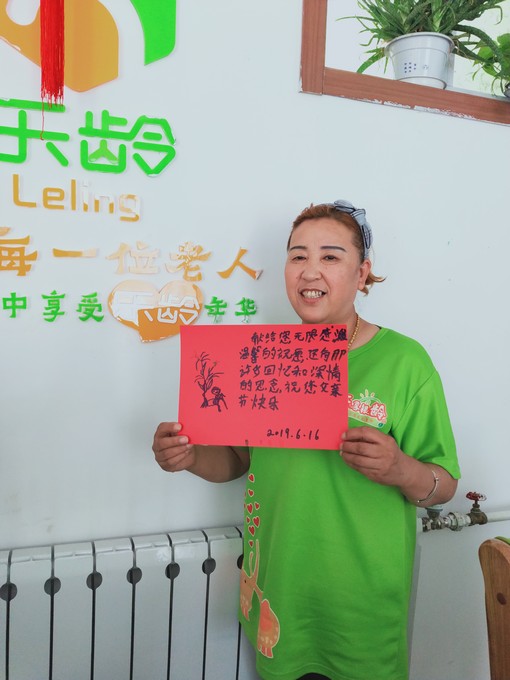 乐龄
Leling
每一位老人
中享受乐龄年华
献给您无限感激
温馨的祝愿,还有那
许多回忆和深情
的思念,祝您父亲
节快乐
2019.6.16
龄